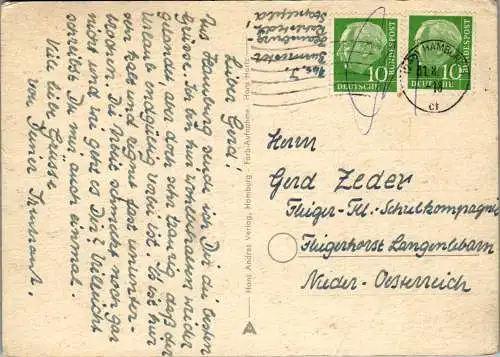 Lieber Gerd!
Aus Hamburg sende ich Dir die besten
Grüsse. Ich bin hier wohlbehalten wieder
gelandet, aber doch sehr traurig, daß der
Urlaub endgültig vorbei ist. Es ist hier
sehr kalt und regnet fast ununter-
brochen. Die Arbeit schmeckt noch gar
nicht und wie geht es Dir? Vielleicht
schreibst Du mir auch einmal.
Viele liebe Grüsse
von Deiner
Hans Andres Verlag, Hamburg - Farb-Aufnahme: Hans Hartz
Abs. J.
Hamburg-
10
DEUTSCHE
BUNDESPOST
10
DEUTSCHE
BUNDESPOST
HAMBURG
Herrn
Gerd Zeder
Flieger-Tel.-Schulkompagnie
Fliegerhorst Langenlebarn
Nieder-Oesterreich